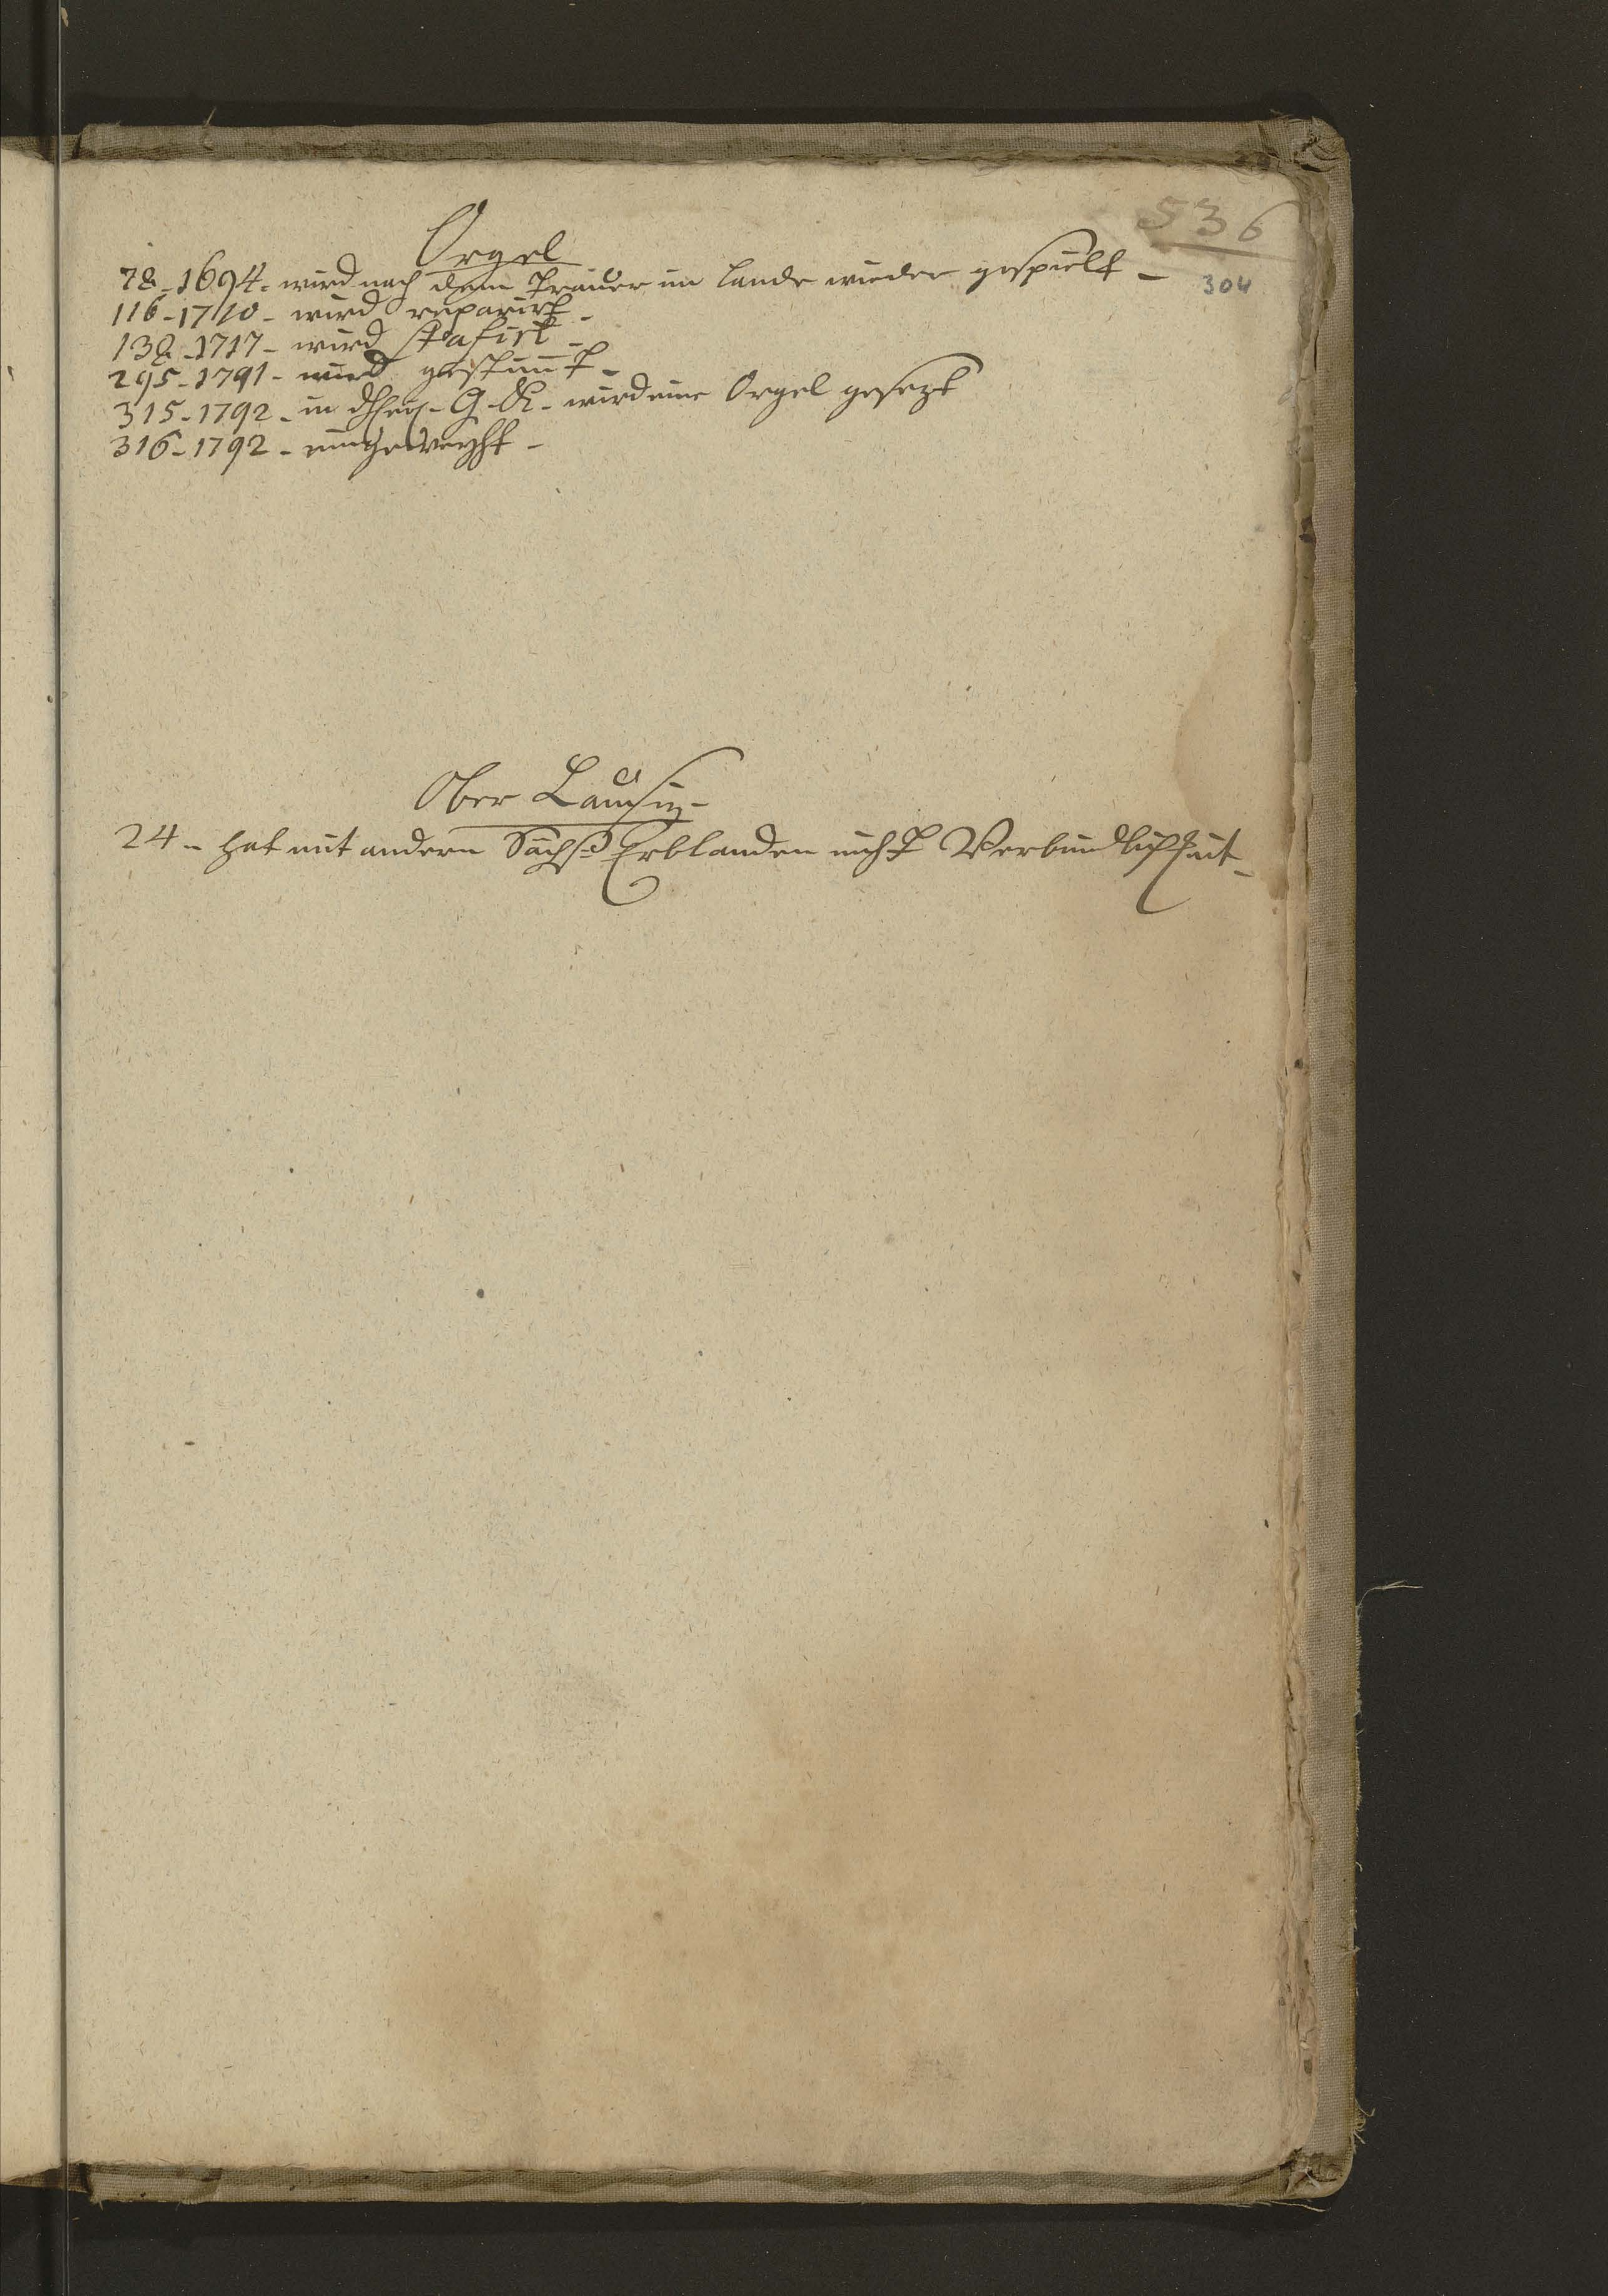 536
304
Orgel
78 - 1694 - wird nach dem Trauer im Lande wieder gespielt -
116 - 1710 - wird reparirt -
138 - 1717 - wird stafirt -
295 - 1791 - wird gestimt -
315 - 1792 - in G. K. wird eine Orgel gesezt
316 - 1792 - eingeweyht -
Ober Lausiz -
24 - hat mit andern Sächß Erblanden nicht Verbindlichkeit -